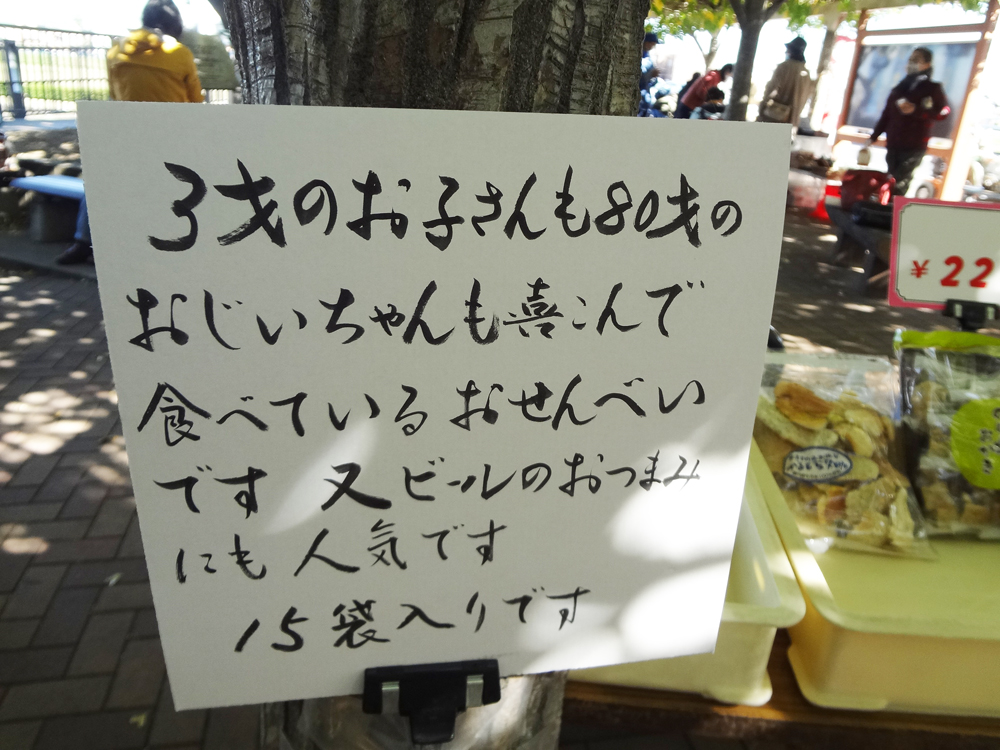 3才のお子さんも80才の
おじいちゃんも喜こんで
食べているおせんべい
です 又ビールのおつまみ
にも人気です
15袋入りです
¥22